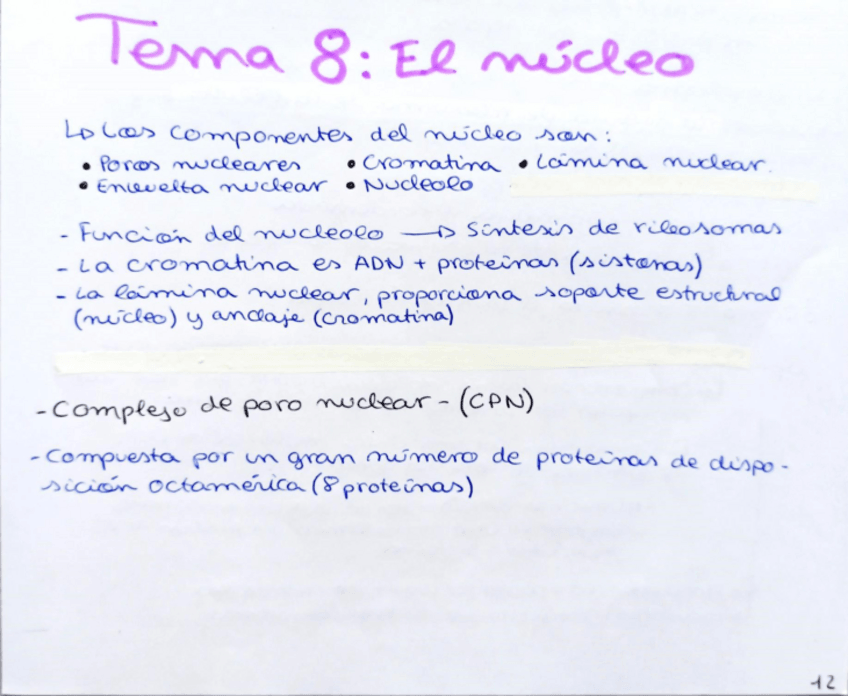 Tema 8: El núcleo
↳ Los componentes del núcleo son:
• Poros nucleares • Cromatina • Lámina nuclear.
• Envuelta nuclear • Nucleolo
- Función del nucleolo → Síntesis de ribosomas
- La cromatina es ADN + proteínas (sistonas)
- La lámina nuclear, proporciona soporte estructural
(núcleo) y anclaje (cromatina)
- Complejo de poro nuclear - (CPN)
- Compuesta por un gran número de proteínas de dispo-
sición octamérica (8 proteínas)
12